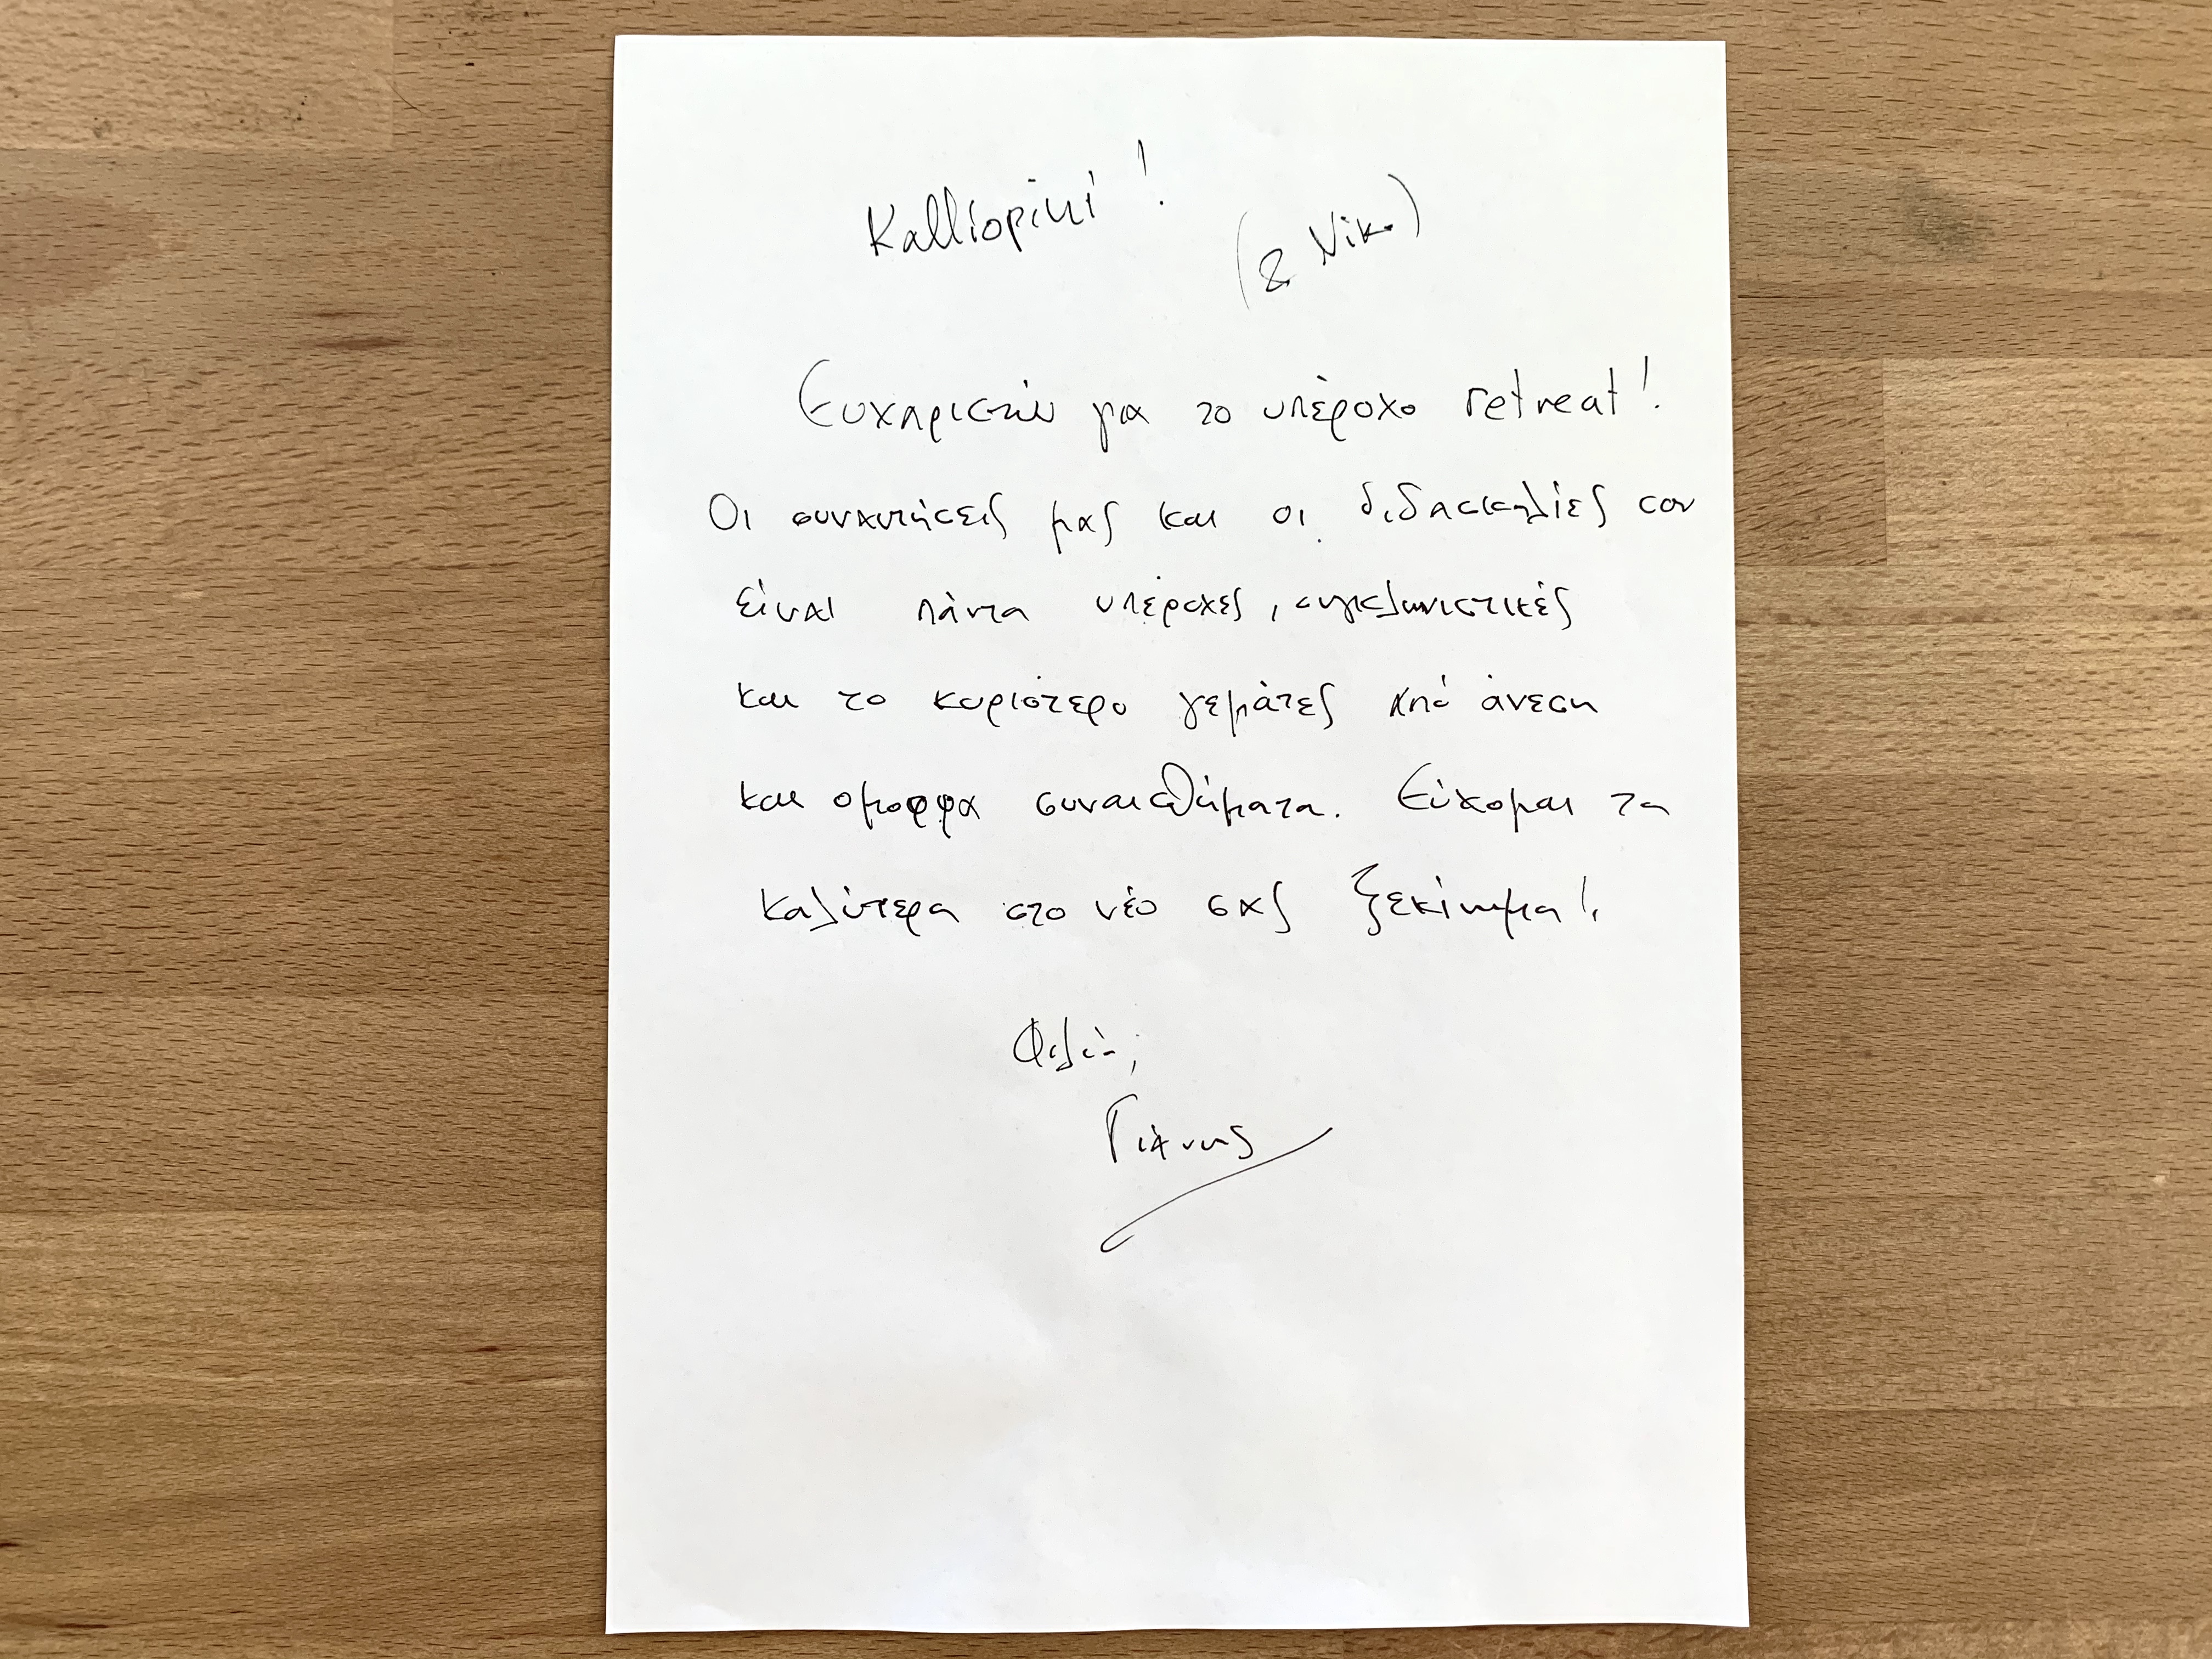 Kalliopiui!
(& Niko)
Ευχαριστώ για το υπέροχο retreat!
Οι συναντήσεις μας και οι διδασκαλίες σου
είναι πάντα υπέροχες, συγκλονιστικές
και το κυριότερο γεμάτες από άνεση
και ομορφα συναισθήματα. Εύχομαι τα
καλύτερα στο νέο σας ξεκίνημα!
Φιλιά,
Γιάννης